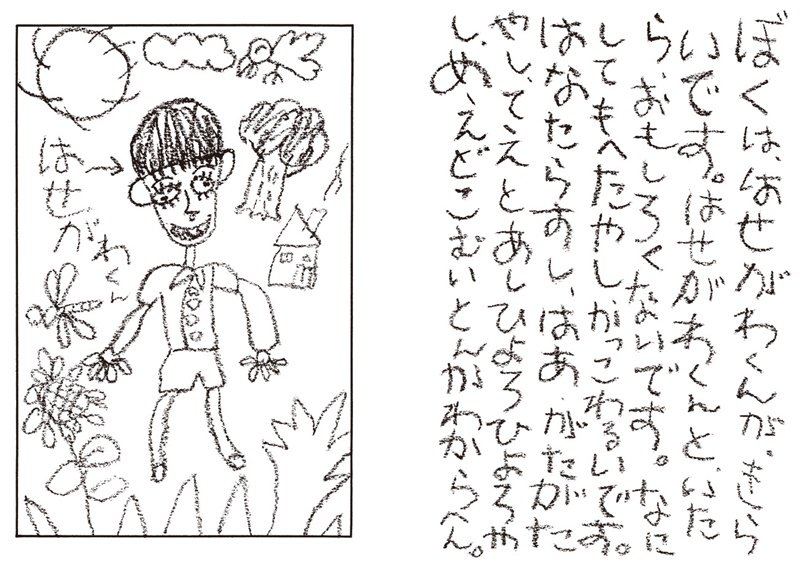 ぼくは、はせがわくんが、きら
いです。はせがわくんと、いた
ら、おもしろくないです。なに
してもへたやし、かっこわるいです。
はなたらすし、はあ、がたがた
やし、てえとあしひょろひょろや
し、めえどこむいとんかわからへん。
はせがわくん→